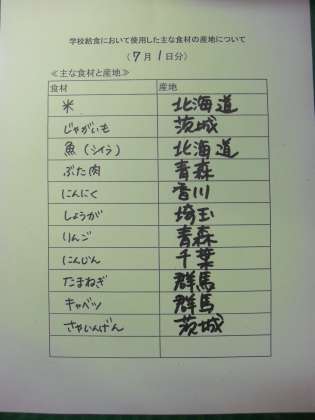 学校給食において使用した主な食材の産地について
(7月1日分)
≪主な食材と産地≫
食材 産地
米 北海道
じゃがいも 茨城
魚(シイラ) 北海道
ぶた肉 青森
にんにく 香川
しょうが 埼玉
りんご 青森
にんじん 千葉
たまねぎ 群馬
キャベツ 群馬
さやいんげん 茨城